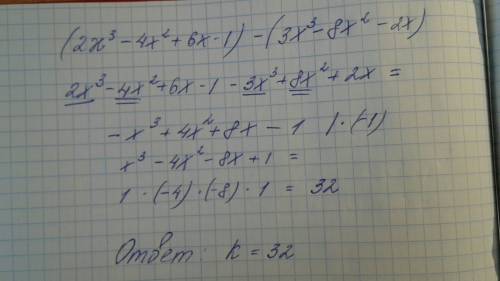 (2x³ - 4x² + 6x - 1) - (3x³ - 8x² - 2x)
2x³ - 4x² + 6x - 1 - 3x³ + 8x² + 2x =
- x³ + 4x² + 8x - 1 | · (-1)
x³ - 4x² - 8x + 1 =
1 · (-4) · (-8) · 1 = 32
Ответ: K = 32